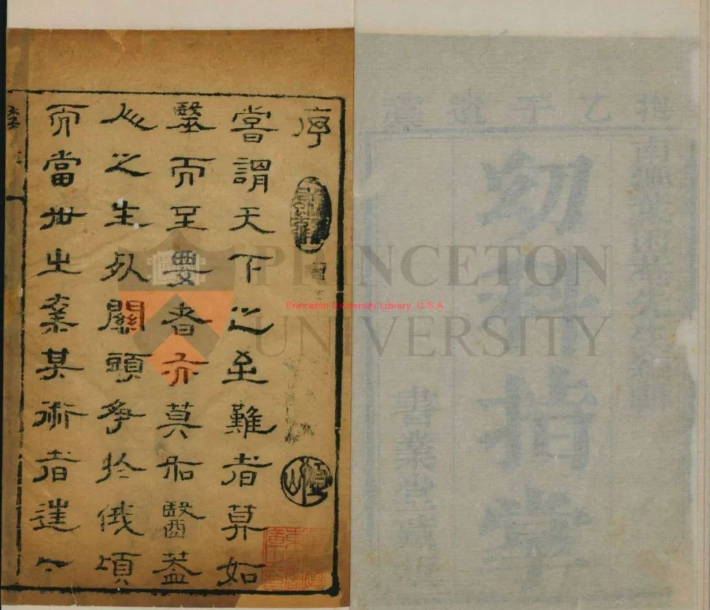 幼科指掌
書業堂藏板
序
嘗謂天下之至難者莫如
毉而至要者亦莫如醫蓋
人之生死關頭爭於俄頃
而當世之業其術者往々
PRINCETON
UNIVERSITY
Princeton University Library, U.S.A.